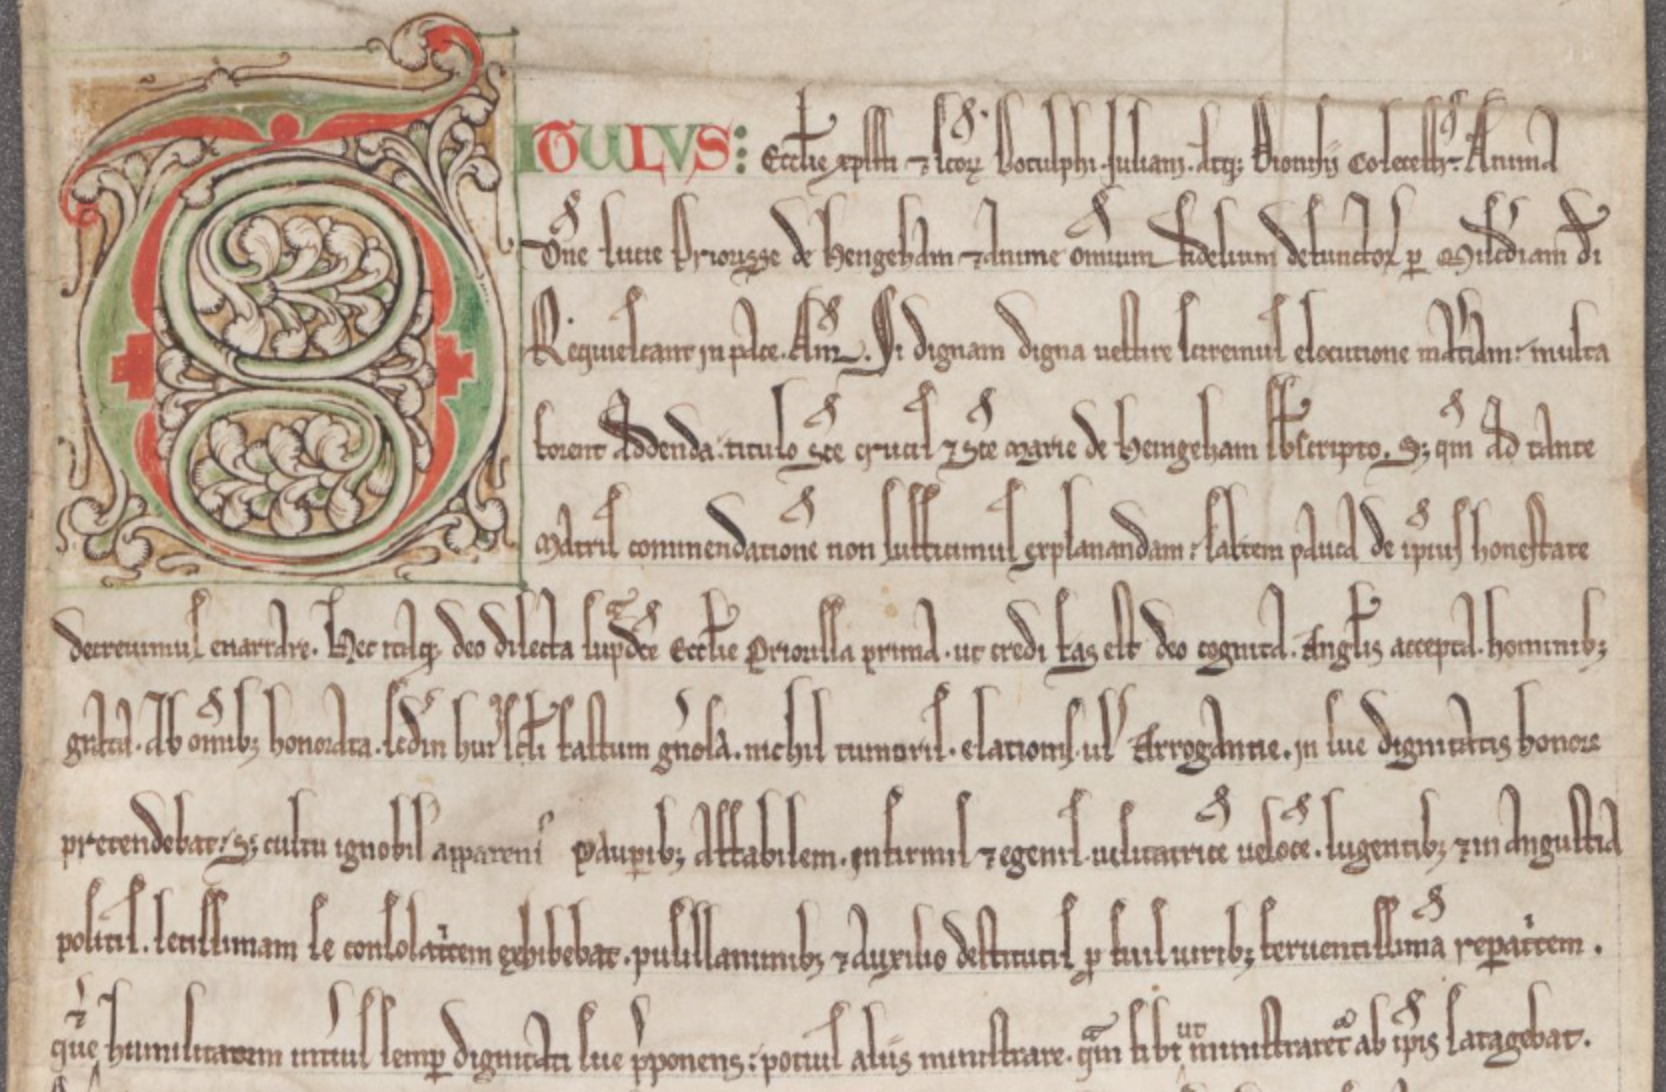 TITULUS: Eccl̄ie xp̄isti ⁊ sc̄oꝝ Botulphi. Juliani. atq; Dionisii Colecestr̄. Anima
dōne Lucie Priorisse de Hengeham ⁊ anime om̄ium fidelium defunctoꝝ ꝑ Mis̄cdiam dī
Requiescant in pace. Am̄. Si dignam digna uestire sciremus elocutione mat̄iam: multa
forent addenda titulo sc̄e crucis ⁊ sc̄e marie de Heingeham sb̄scripto. S; qm̄ ad tante
matris commendationē non sufficimus explanandam: saltem pauca de ip̄ius honestate
decreuimus enarrare. Hec itaq; deo dilecta sup̄dc̄e Eccl̄ie Priorissa prima. ut credi fas est deo cognita. Angl̄is accepta. hominib;
grata. Ab om̄ib; honorata. scd̄m hui' scl̄i fastum gn̄osa. nichil tumoris. elationis. ul' Arrogantie. in sue dignitatis honore
pretendebat: S; cultu ignobil' apparens Pauꝑib; affabilem. infirmis ⁊ egenis uisitatricē uelocē. lugentib; ⁊ in angustia
positis. letissimam se consolat̄cem exhibebat. pusillanimib; ⁊ auxilio destitutis ꝑ suis uirib; feruentissimā reꝑat̄cem.
⁊
que humilitatem intius semꝑ dignitati sue p̄ponens: potius aliis ministrare. qᵃm sibi ut ministraret' ab ip̄is satagebat.